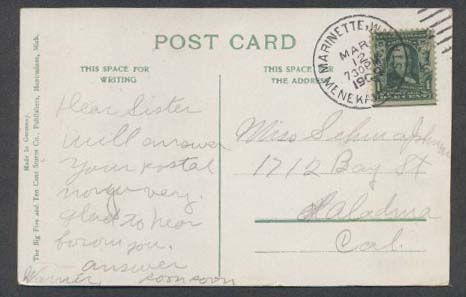 POST CARD
THIS SPACE FOR
WRITING
THIS SPACE FOR
THE ADDRESS
MARINETTE, W
MAR
12
7 30 P
190
MENEKA
Made in Germany.
The Big Five and Ten Cent Stores Co., Publishers, Mich.
Dear Sister
will answer
your postal
now very.
glad to hear
you.
answer
soon soon
Miss
1712 Bay St
Cal.